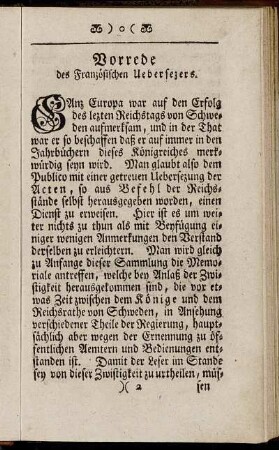 )o(
Vorrede
des Französischen Uebersezers.
Ganz Europa war auf den Erfolg
des lezten Reichstags von Schwe-
den aufmerksam, und in der That
war er so beschaffen daß er auf immer in den
Jahrbüchern dieses Königreiches merk-
würdig seyn wird. Man glaubt also dem
Publico mit einer getreuen Uebersezung der
Acten, so aus Befehl der Reichs-
stände selbst herausgegeben worden, einen
Dienst zu erweisen. Hier ist es um wei-
ter nichts zu thun als mit Beyfügung ei-
niger wenigen Anmerkungen den Verstand
derselben zu erleichtern. Man wird gleich
zu Anfange dieser Sammlung die Memo-
riale antreffen, welche bey Anlaß der Zwi-
stigkeit herausgekommen sind, die vor et-
was Zeit zwischen dem Könige und dem
Reichsrathe von Schweden, in Ansehung
verschiedener Theile der Regierung, haupt-
sächlich aber wegen der Ernennung zu öf-
fentlichen Aemtern und Bedienungen ent-
standen ist. Damit der Leser im Stande
sey von dieser Zwistigkeit zu urtheilen, müs-
)( 2 sen